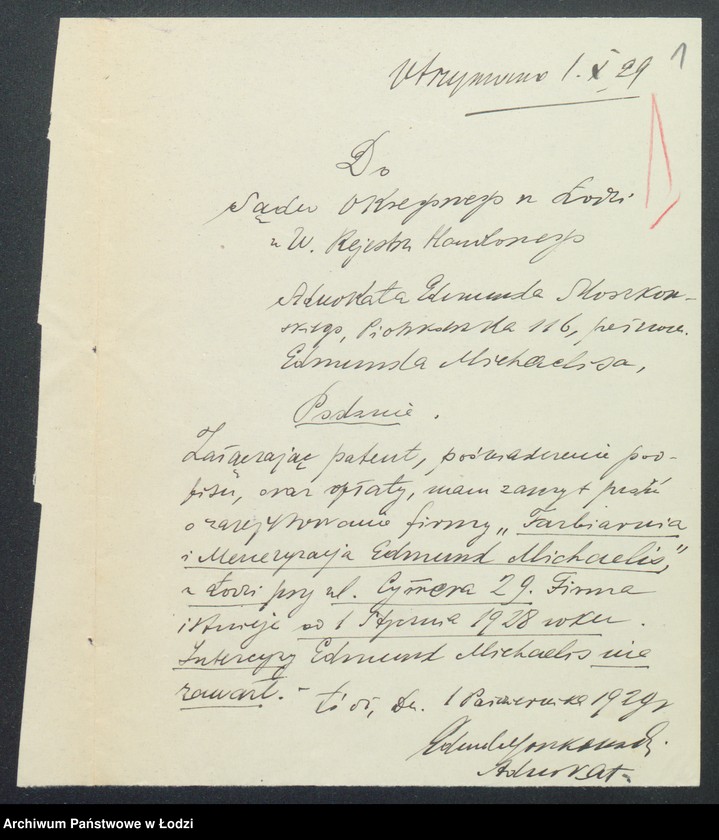 Otrzymano 1.X 29
1
Do
Sądu Okręgowego w Łodzi
w W. Rejestru Handlowego
Adwokata Edmunda Moszkow-
skiego, Piotrkowska 116, pełnom.
Edmunda Michaelisa,
Podanie.
Załączając patent, poświadczenie pod-
pisu, oraz opłaty, mam zaszczyt prosić
o zarejestrowanie firmy „Farbiarnia
i Merceryzacja Edmund Michaelis,"
w Łodzi przy ul. 29. Firma
istnieje od 1 Stycznia 1928 roku.
Intercyzy Edmund Michaelis nie
zawarł.-
Łódź, dn. 1 Października 1929 r
Adwokat.
Archiwum Państwowe w Łodzi